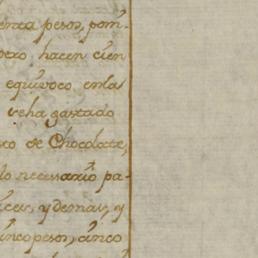 pesos, pom-
otro hacen cien
equivoco enlas
seha gastado
co de Chocolate,
lo necessario pa-
y demas, y
cinco pesos, cinco